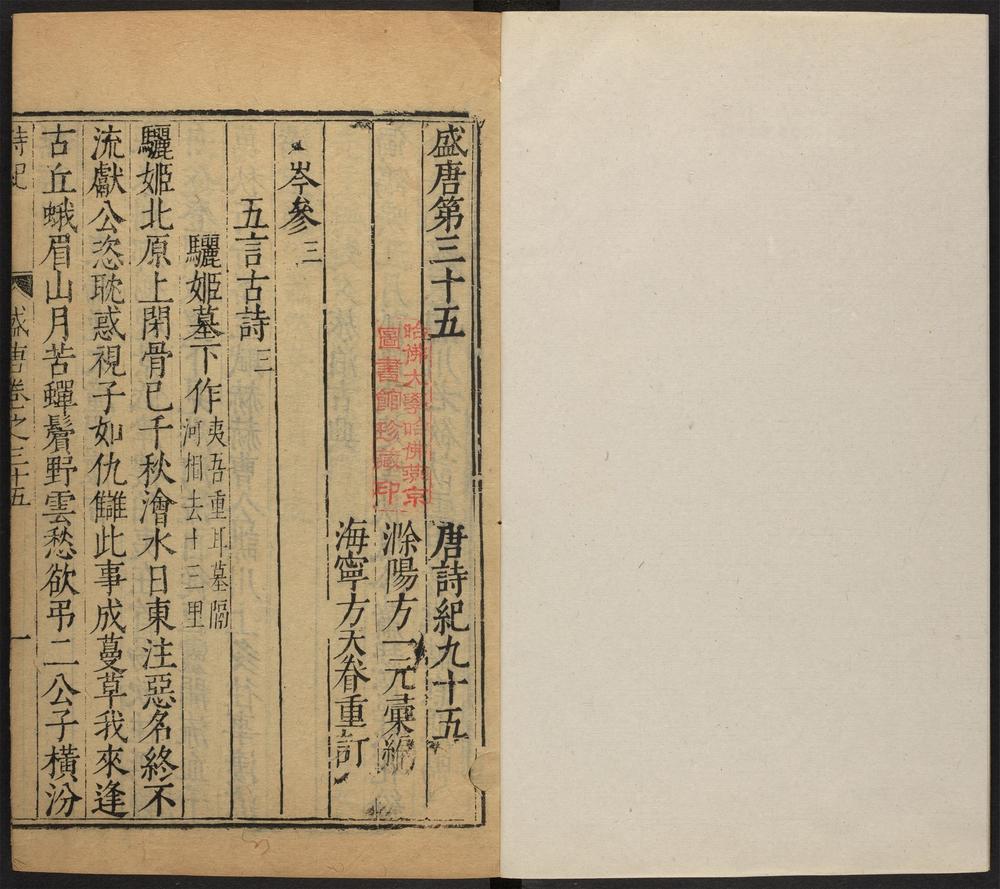 盛唐第三十五　唐詩紀九十五
滁陽方一元彙編
海寧方天眷重訂
岑參三
五言古詩三
驪姬墓下作夷吾重耳墓隔
河相去十三里
驪姬北原上閉骨已千秋澮水日東注惡名終不
流獻公恣耽惑視子如仇讎此事成蔓草我來逢
古丘蛾眉山月苦蟬鬢野雲愁欲弔二公子橫汾
詩紀　盛唐卷之三十五　一
哈佛大學哈佛燕京
圖書館珍藏印